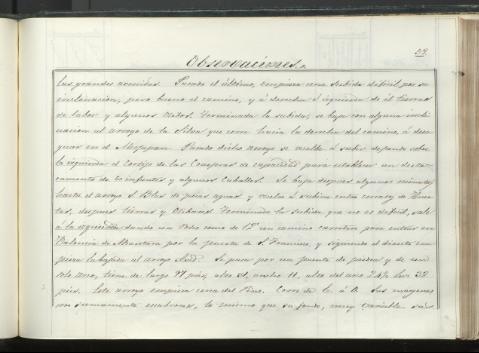 Observaciones.
33.
las grandes avenidas. Pasado el último, empieza una subida dificil por su
inclinacion, pero bueno el camino, y á derecha é izquierda de él tierras
de labor y algunos Olivos. Terminada la subida, se baja con alguna incli
nacion al arroyo de la que corre hacia la derecha del camino, á desa
guar en el Pasado dicho arroyo se vuelve á subir dejando sobre
la izquierda el Cortijo de las de capacidad para establecer un desta
camento de Infanteria y algunos Caballos. Se baja despues algunos minutos
hasta el arroyo S. Blas de pocas aguas y vuelve á subirse entre cerros de
despues tierras y Olivares. Terminada la subida que no es dificil, sale
á la izquierda dando un Codo como de un camino carretero para entrar en
por la puerta de S. Francisco, y siguiendo el directo em
pieza la bajada al arroyo Se pasa por un puente de piedra y de un
solo arco, tiene de largo 77 pies, alto 21, ancho 11, alto del arco
pies. Este arroyo empieza cerca del Corre de E. á O. Sus margenes
son sumamente lo mismo que su fondo, muy variable